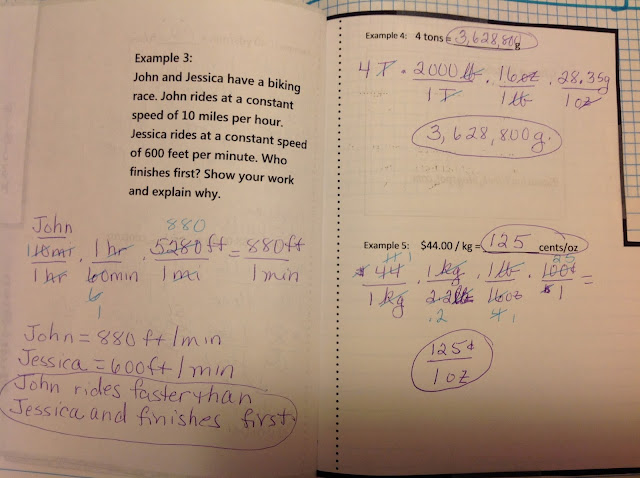 Example 3:
John and Jessica have a biking
race. John rides at a constant
speed of 10 miles per hour.
Jessica rides at a constant speed
of 600 feet per minute. Who
finishes first? Show your work
and explain why.
John
880
10mi . 1 hr . 5280 ft = 880 ft
1 hr 60 min 1 mi 1 min
6
1
John = 880 ft / min
Jessica = 600 ft / min
John rides faster than
Jessica and finishes first.
Example 4: 4 tons = 3,628,800 g
4 T . 2000 lb . 16 oz . 28.35g
1 T 1 lb 1 oz
3,628,800 g.
Example 5: $44.00 / kg = 125 cents/oz
25
$44 . 1 kg . 1 lb . 100¢ =
1 kg 2.2 lb 16 oz $1
.2 4 1
125¢
1 oz